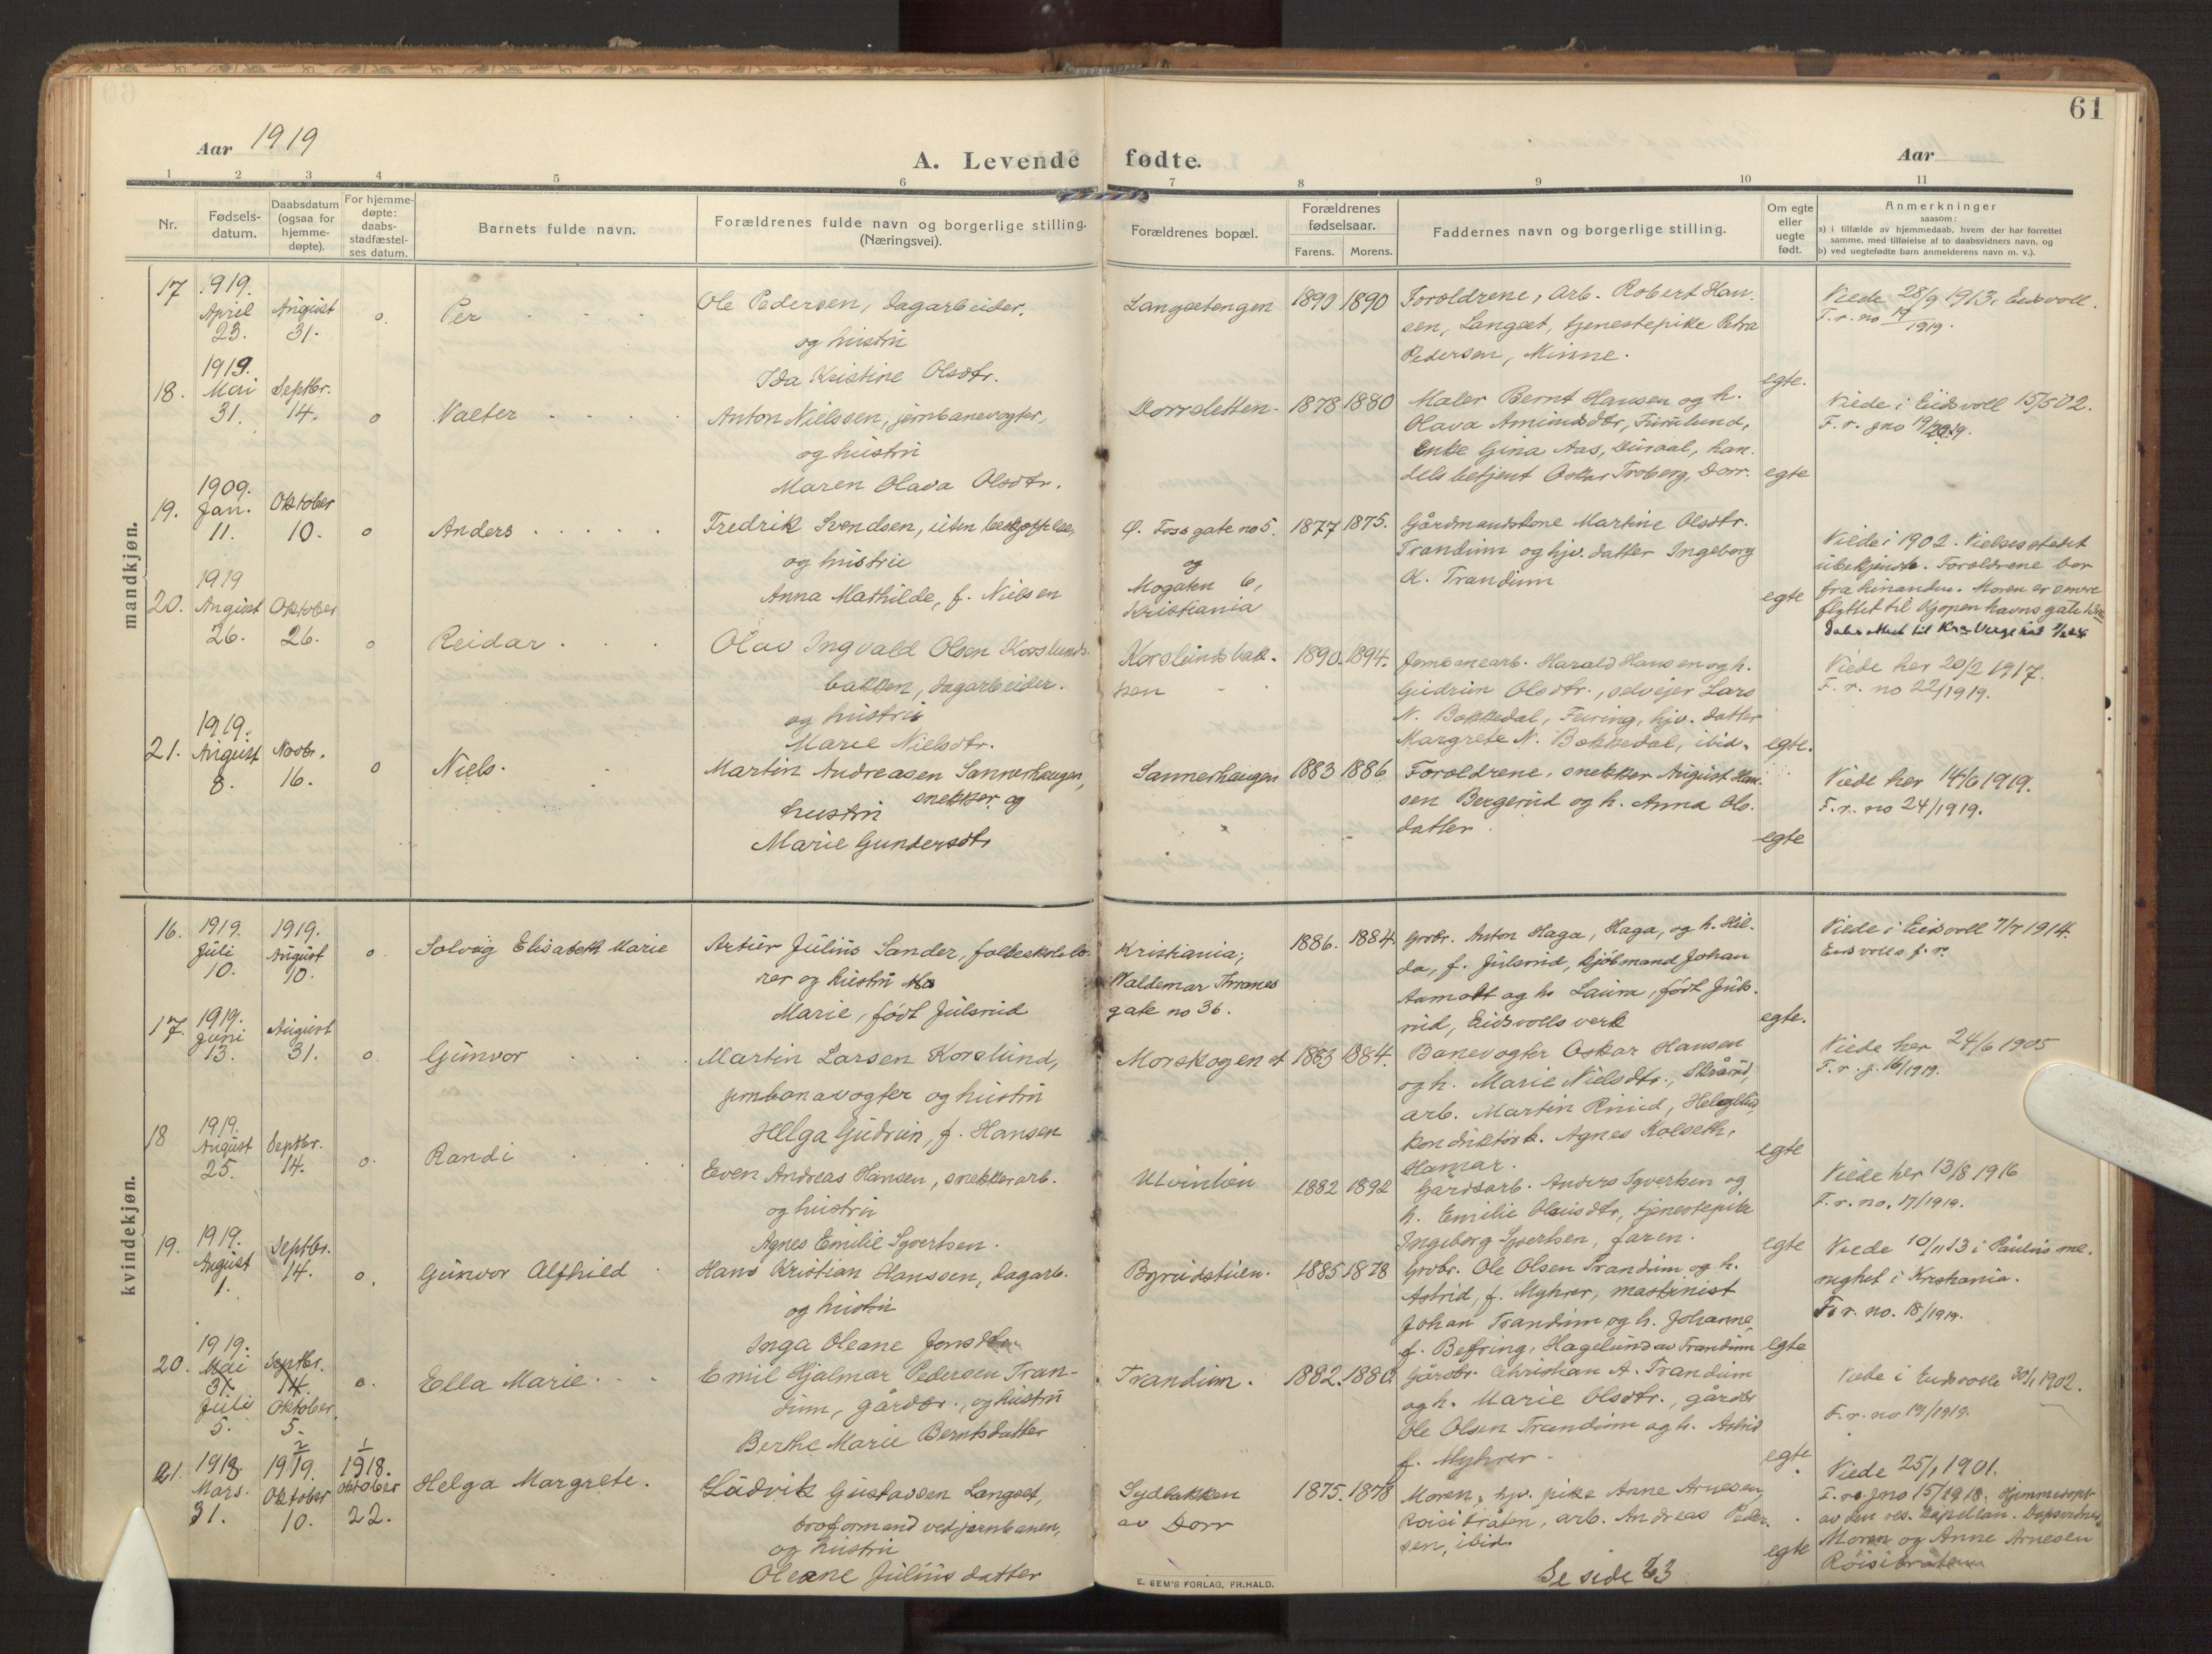 61
Aar 1919
A. Levende fødte.
Aar
1 2 3 4 5 6 7 8 9 10 11
Nr.
Fødsels-
datum.
Daabsdatum
(ogsaa for
hjemme-
døpte).
For hjemme-
døpte:
daabs-
stadfæstel-
ses datum.
Barnets fulde navn.
Forældrenes fulde navn og borgerlige stilling.
(Næringsvei).
Forældrenes bopæl.
Forældrenes
fødselsaar.
Farens. Morens.
Faddernes navn og borgerlige stilling.
Om egte
eller
uegte
født.
Anmerkninger
saasom:
a) i tilfælde av hjemmedaab, hvem der har forrettet
samme, med tilføielse af to daabsvidners navn, og
b) ved uegtefødte barn anmelderens navn m. v.).
mandkjøn.
17
1919.
April
23.
August
31.
o.
Per
Ole Pedersen, dagarbeider,
og hustru
Ida Kristine Olsdtr.
Langsetengen
1890 1890
Forældrene, Arb. Robert Han-
sen, Langset, tjenestepike Petra
Pedersen, Minne.
egte.
Viede 28/9 1913, Eidsvoll.
F. r. no 17/1919.
18.
1919.
Mai
31.
Septbr.
14.
o
Valter
Anton Nielssen, jernbanevogter,
og hustru
Maren Olava Olsdtr.
Dorrsletten
1878 1880
Maler Bernt Hansen og h.
Olava Amundsdtr, Furulund,
Enke Gina Aas, Dusaal, han-
delsbetjent Oskar Troberg, Dorr.
egte
Viede i Eidsvoll 15/5 02.
F. r. gno
19.
1909.
Jan.
11.
Oktober
10.
o
Anders
Fredrik Svendsen, uten beskjæftelse,
og hustru
Anna Mathilde, f. Nielsen
Ø. Fossgate no 5.
og
Mogaten 6,
Kristiania
1877 1875.
Gårdmandskone Martine Olsdtr.
Trandum og hjv. datter Ingeborg
K. Trandum
egte
Viede i 1902. Vielsesstedet
ubekjendt. Forældrene bor
fra hinanden. Moren er senere
flyttet til Kjøpenhavnsgate
20.
1919
August
26.
Oktober
26.
o
Reidar
Olav Ingvald Olsen Korslunds-
bakken, dagarbeider.
og hustru
Marie Nielsdtr.
Korslundsbak-
ken
1890. 1894.
Jernbanearb. Harald Hansen og h.
Gudrun Olsdtr., selveier Lars
N. Bækkedal, Feiring, hjv. datter
Margrete N. Bækkedal, ibid.
egte.
Viede her 20/2 1917.
F. r. no 22/1919.
21.
1919.
August
8.
Novbr.
16.
o
Niels.
Martin Andreasen Sannerhaugen,
snekker og
hustru
Marie Gundersdtr
Sannerhaugen
1883 1886
Forældrene, snekker August Han-
sen Bergerud og h. Anna Ols-
datter.
egte
Viede her 14/6 1919.
F. r. no 24/1919.
kvindekjøn.
16.
1919.
Juli
10.
1919.
August
10.
o.
Solveig Elisabeth Marie
Artur Julius Sander, folkeskolelæ-
rer og hustru
Marie, født Julsrud
Kristiania;
Waldemar Thranes
gate no 36.
1886. 1884.
Grbr. Anton Haga, Haga, og h. Hil-
da, f. Julsrud, kjøbmand Johan
Aamodt og h. Laura, født Juls-
rud, Eidsvolls verk
egte.
Viede i Eidsvoll 7/7 1914.
Eidsvolls f. r.
17.
1919.
Juni
13.
August
31.
o
Gunvor
Martin Larsen Korslund,
jernbanavogter og hustru
Helga Gudrun, f. Hansen
Morskogen st
1883 1884.
Banevogter Oskar Hansen
og h. Marie Nielsdtr., Skrårud,
arb. Martin Rniud,
konduktør h. Agnes Kolseth,
Hamar.
egte
Viede her 24/6 1905
F. r. g. 16/1919.
18
1919.
August
25.
Septbr.
14.
o.
Randi
Even Andreas Hansen, snekkerarb.
og hustru
Agnes Emilie Syvertsen.
Utvinlien
1882 1892
Gårdsarb. Anders Syvertsen og
h. Emilie Olausdtr, tjenestepike
Ingeborg Syvertsen, faren.
egte
Viede her 13/8 1916
F. r. no. 17/1919.
19.
1919.
August
1.
Septbr.
14.
o.
Gunvor Alfhild
Hans Kristian Hanssen, dagarb.
og hustru
Inga Oleane Jonsdtr
Byrudstuen.
1885 1878
Grbr. Ole Olsen Trandum og h.
Astrid, f. Myhrer, maskinist
Johan Trandum og h. Johanne,
f. Befring, Hagelund av Trandum
egte
Viede 10/11 13 i Paulus me-
nighet i Kristiania.
F. r. no. 18/1919.
20.
1919.
Mai
31.
Juli
5.
Septbr.
14.
Oktober
5.
o.
Ella Marie
Emil Hjalmar Pedersen Tran-
dum, gårdbr., og hustru
Berthe Marie Berntsdatter
Trandum.
1882. 1880.
Gårdbr. Christian A. Trandum
og h. Marie Olsdtr., gårdbr
Ole Olsen Trandum og h. Astrid
f. Myhrer.
egte
Viede i Eidsvoll 30/1 1902.
F. r. no 19/1919.
21.
1918
Mars.
31.
2
1919.
Oktober
10.
1
1918.
Oktober
22.
Helga Margrete.
Ludvik Gustavsen Langset,
broformand ved jernbanen,
og hustru
Oleane Juliusdatter
Sydbakken
av Dorr
1875. 1878
Moren, hjv. pike Anne Arnesen,
Røisibråten, arb. Andreas Peder-
sen, ibid.
egte
Viede 25/1 1901.
F. r. gno 15/1918. Hjemmedøpt
av den res. kapellan. Dapsvidner
Moren og Anne Arnesen
Røisibråten
Se side 63
E. SEM'S FORLAG, FR.HALD.